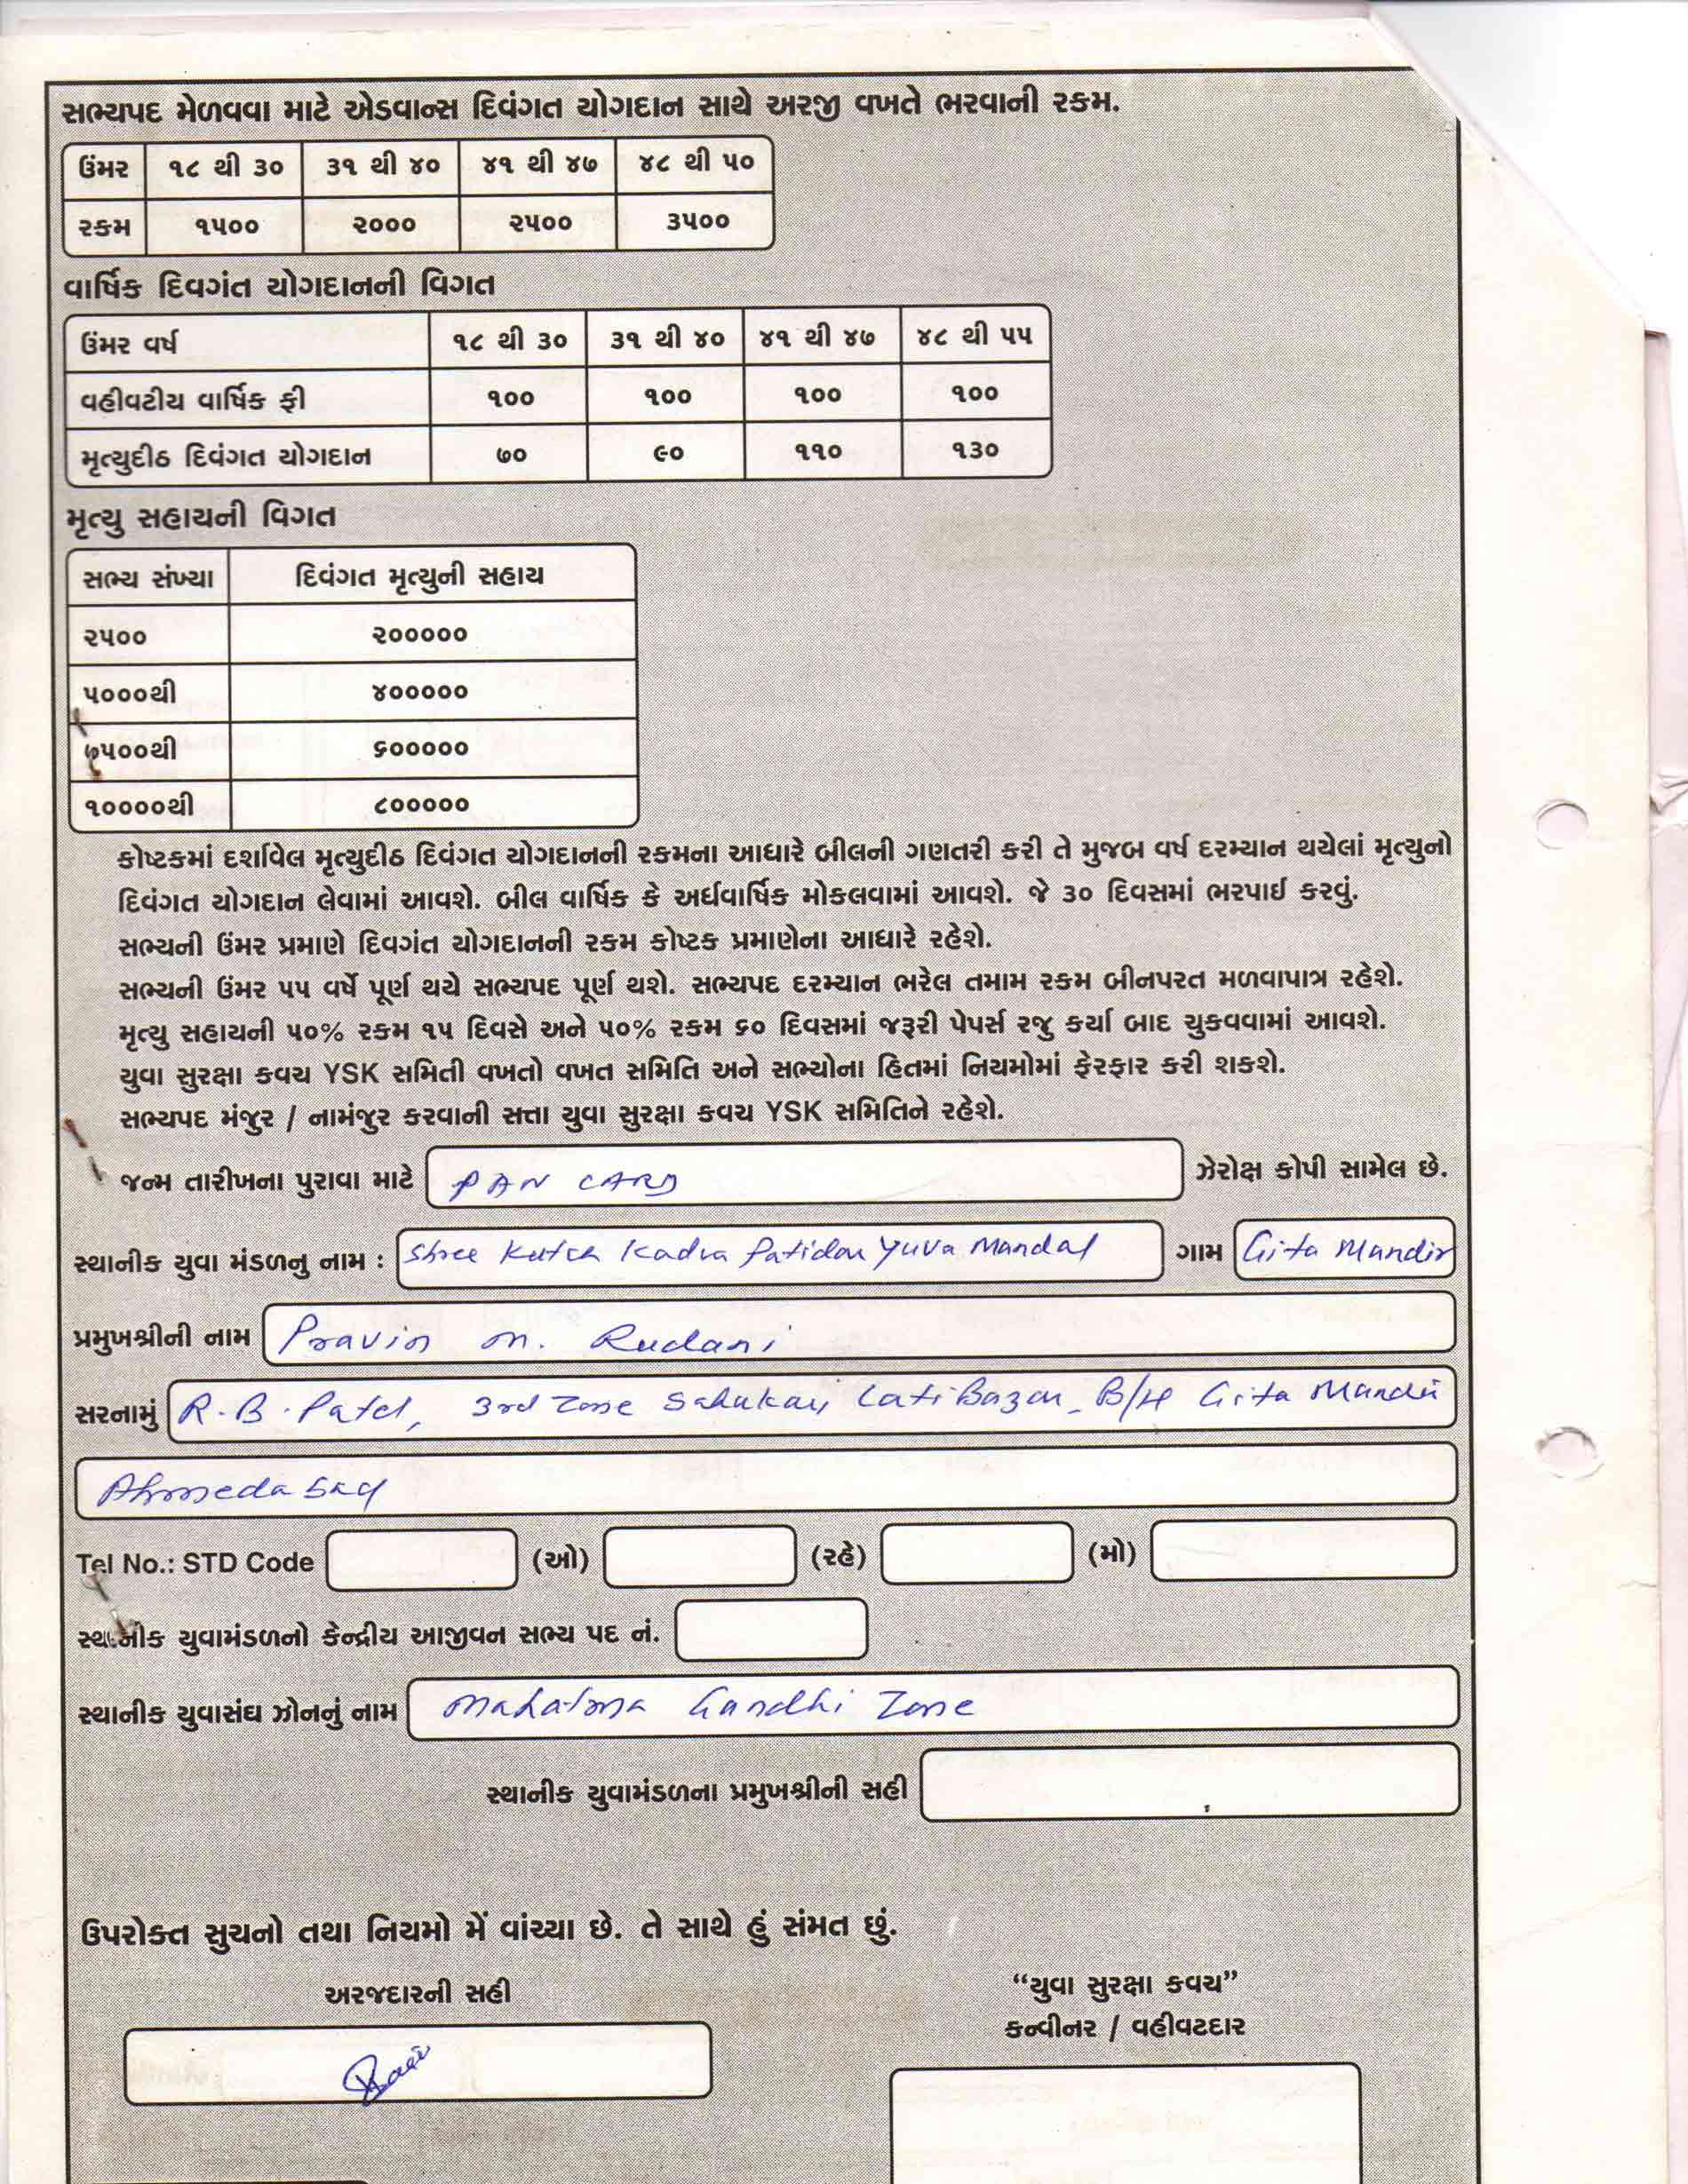 સભ્યપદ મેળવવા માટે એડવાન્સ દિવંગત યોગદાન સાથે અરજી વખતે ભરવાની રકમ.
ઉંમર ૧૮ થી ૩૦ ૩૧ થી ૪૦ ૪૧ થી ૪૭ ૪૮ થી ૫૦
રકમ ૧૫૦૦ ૨૦૦૦ ૨૫૦૦ ૩૫૦૦
વાર્ષિક દિવગંત યોગદાનની વિગત
ઉંમર વર્ષ ૧૮ થી ૩૦ ૩૧ થી ૪૦ ૪૧ થી ૪૭ ૪૮ થી ૫૫
વહીવટીય વાર્ષિક ફી ૧૦૦ ૧૦૦ ૧૦૦ ૧૦૦
મૃત્યુદીઠ દિવંગત યોગદાન ૭૦ ૯૦ ૧૧૦ ૧૩૦
મૃત્યુ સહાયની વિગત
સભ્ય સંખ્યા દિવંગત મૃત્યુની સહાય
૨૫૦૦ ૨૦૦૦૦૦
૫૦૦૦થી ૪૦૦૦૦૦
૭૫૦૦થી ૬૦૦૦૦૦
૧૦૦૦૦થી ૮૦૦૦૦૦
કોષ્ટકમાં દર્શાવેલ મૃત્યુદીઠ દિવંગત યોગદાનની રકમના આધારે બીલની ગણતરી કરી તે મુજબ વર્ષ દરમ્યાન થયેલાં મૃત્યુનો
દિવંગત યોગદાન લેવામાં આવશે. બીલ વાર્ષિક કે અર્ધવાર્ષિક મોકલવામાં આવશે. જે ૩૦ દિવસમાં ભરપાઈ કરવું.
સભ્યની ઉંમર પ્રમાણે દિવગંત યોગદાનની રકમ કોષ્ટક પ્રમાણેના આધારે રહેશે.
સભ્યની ઉંમર ૫૫ વર્ષે પૂર્ણ થયે સભ્યપદ પૂર્ણ થશે. સભ્યપદ દરમ્યાન ભરેલ તમામ રકમ બીનપરત મળવાપાત્ર રહેશે.
મૃત્યુ સહાયની ૫૦% રકમ ૧૫ દિવસે અને ૫૦% રકમ ૬૦ દિવસમાં જરૂરી પેપર્સ રજુ કર્યા બાદ ચુકવવામાં આવશે.
યુવા સુરક્ષા કવચ YSK સમિતી વખતો વખત સમિતિ અને સભ્યોના હિતમાં નિયમોમાં ફેરફાર કરી શકશે.
સભ્યપદ મંજુર / નામંજુર કરવાની સત્તા યુવા સુરક્ષા કવચ YSK સમિતિને રહેશે.
જન્મ તારીખના પુરાવા માટે PAN CARD ઝેરોક્ષ કોપી સામેલ છે.
સ્થાનીક યુવા મંડળનુ નામ : Shree Kutch Kadva Patidar Yuva Mandal ગામ Gita Mandir
પ્રમુખશ્રીની નામ Pravin m. Rudani
સરનામું R.B.Patel, 3rd Zone Sahakari Lati Bazar B/H Gita Mandir
Ahmedabad
Tel No.: STD Code (ઓ) (રહે) (મો)
સ્થાનીક યુવામંડળનો કેન્દ્રીય આજીવન સભ્ય પદ નં.
સ્થાનીક યુવાસંઘ ઝોનનું નામ Mahatma Gandhi Zone
સ્થાનીક યુવામંડળના પ્રમુખશ્રીની સહી
ઉપરોક્ત સુચનો તથા નિયમો મેં વાંચ્યા છે. તે સાથે હું સંમત છું.
અરજદારની સહી
“યુવા સુરક્ષા કવચ”
કન્વીનર / વહીવટદાર